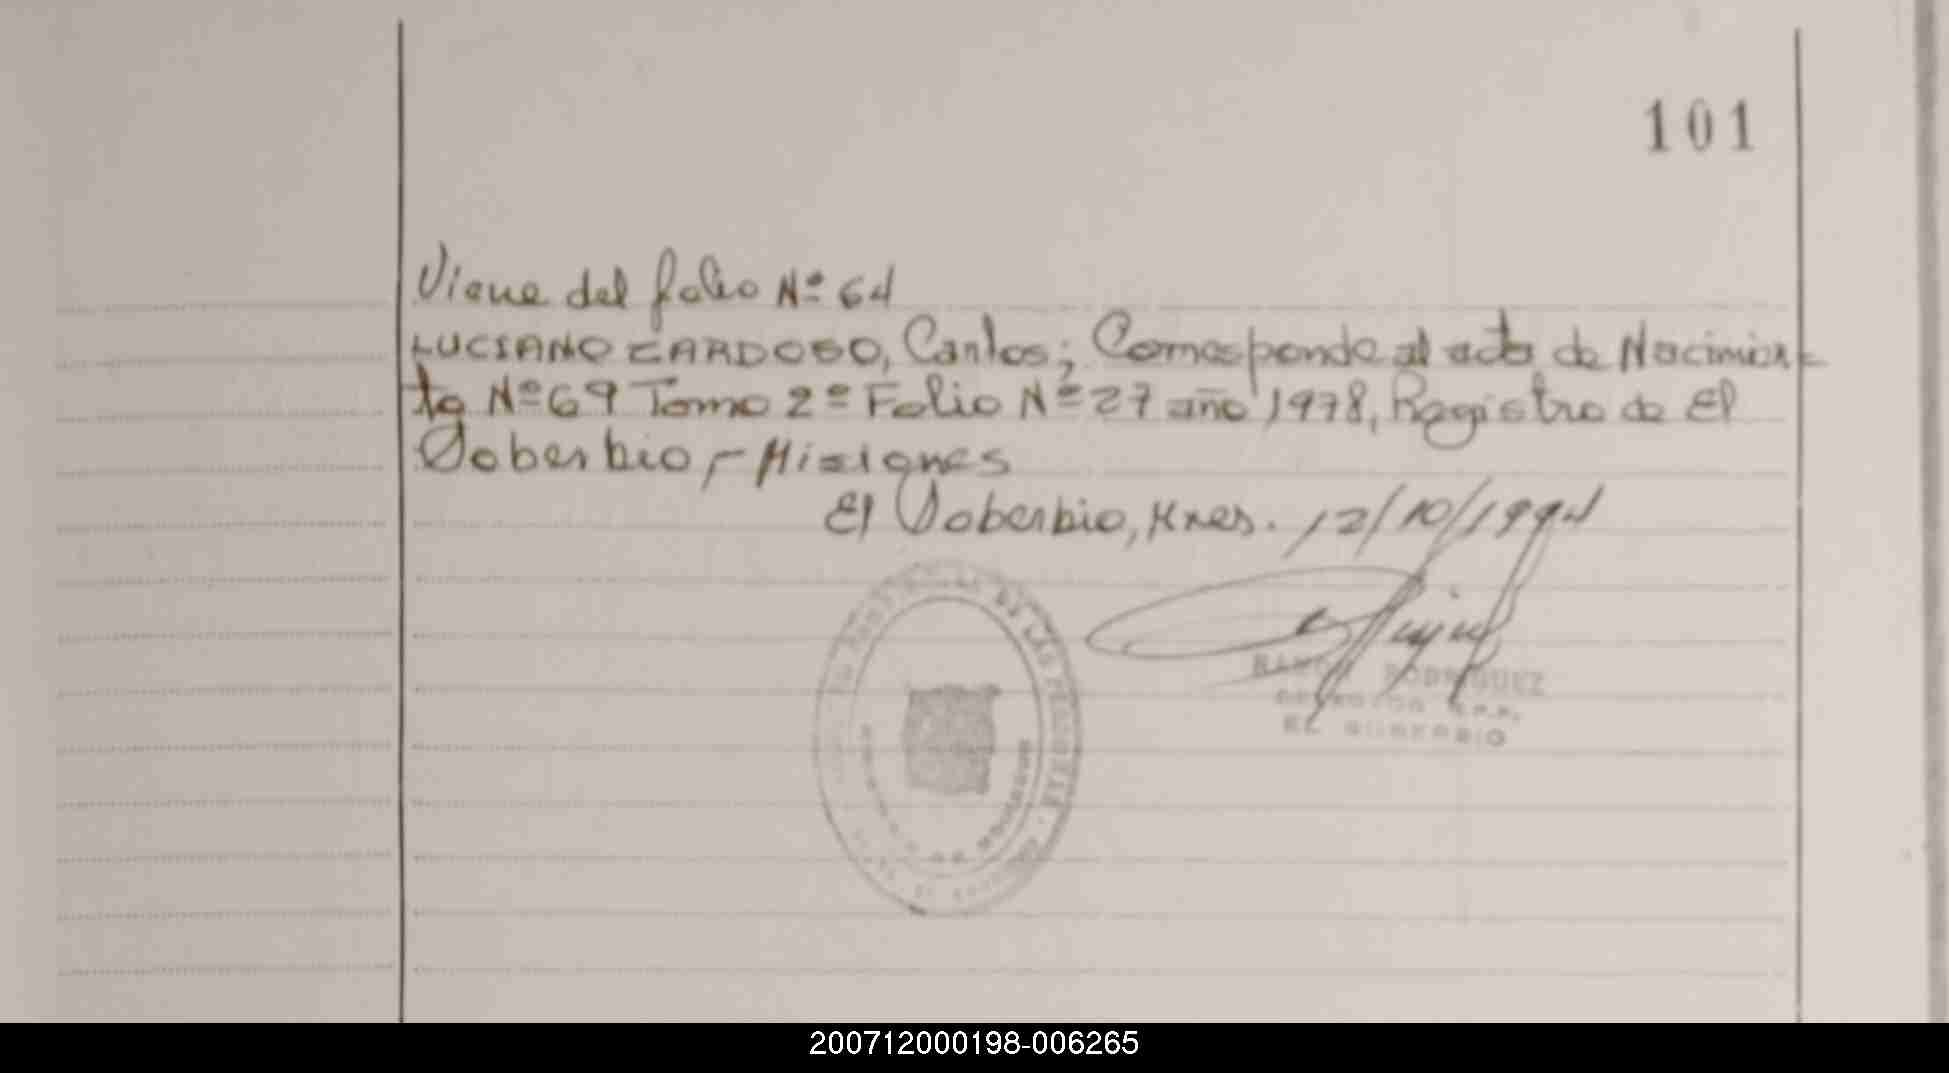 101
Viene del folio Nº 64
LUCIANO CARDOSO, Carlos; Corresponde al acta de Nacimien-
to Nº 69 Tomo 2º Folio Nº 27 año 1978, Registro de El
Soberbio,- Misiones
El Soberbio, Mnes. 12/10/1994
DE LAS PERSONAS
RAMON RODRIGUEZ
EL SOBERBIO
200712000198-006265